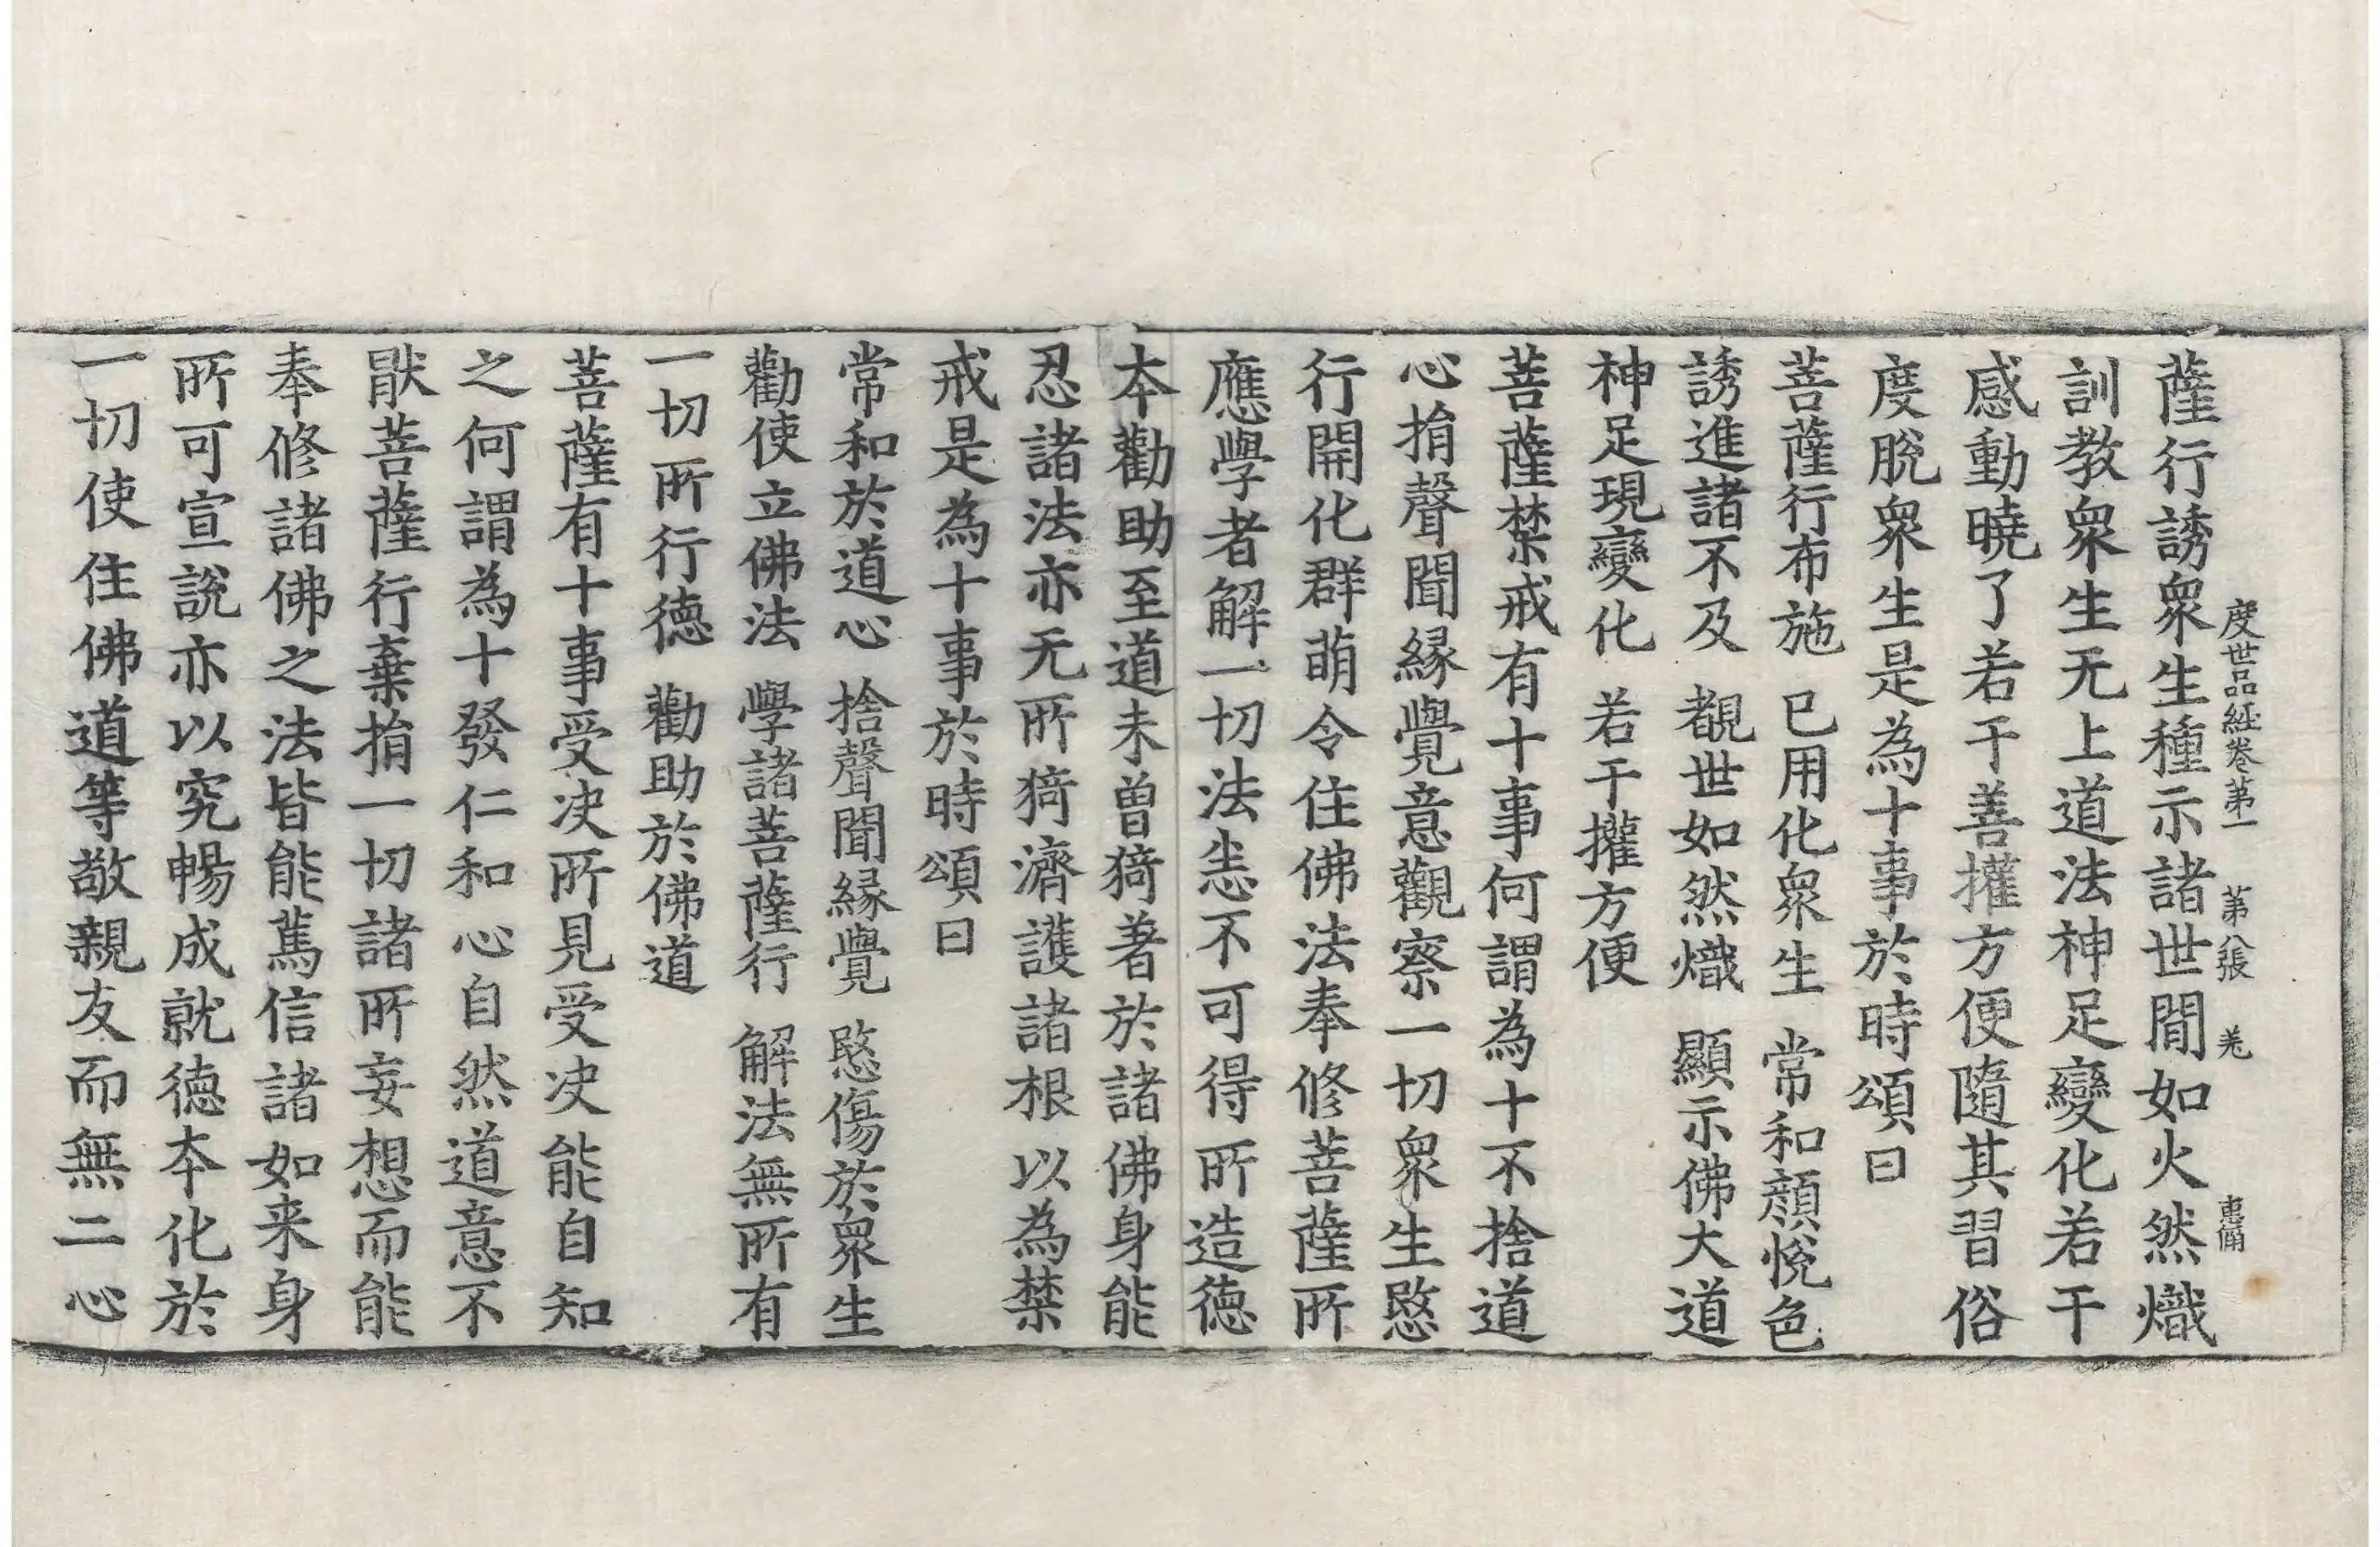 度世品経卷苐一　苐八張　羗　惠俻
薩行誘衆生種示諸世間如火然熾
訓教衆生无上道法神足變化若干
感動曉了若干善㩲方便隨其習俗
度脫衆生是為十事於時頌曰
菩薩行布施　已用化衆生　常和顔悅色
誘進諸不及　覩世如然熾　顯示佛大道
神足現變化　若干㩲方便
菩薩禁戒有十事何謂為十不捨道
心捐聲聞縁覺意觀察一切衆生愍
行開化群萌令住佛法奉修菩薩所
應學者解一切法恙不可得所造德
夲勸助至道未曽猗著於諸佛身能
忍諸法亦无所猗濟護諸根以為禁
戒是為十事於時頌曰
常和於道心　捨聲聞縁覺　愍傷於衆生
勸使立佛法　學諸菩薩行　解法無所有
一切所行徳　勸助於佛道
菩薩有十事受决所見受决能自知
之何謂為十發仁和心自然道意不
猒菩薩行棄捐一切諸所妄想而能
奉修諸佛之法皆能篤信諸如来身
所可宣說亦以究暢成就德夲化於
一切使住佛道等敬親友而無二心